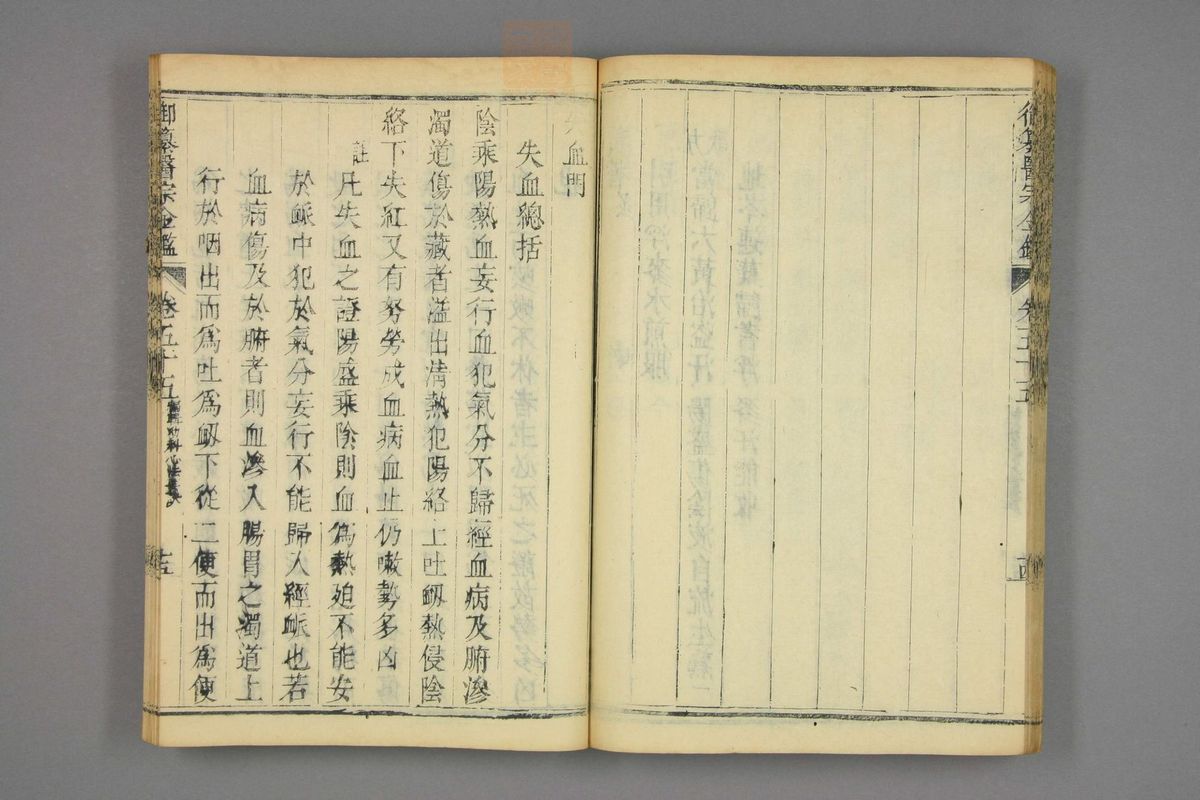 御纂醫宗金鑑
卷五十五
失血門
失血總括
陰乘陽熱血妄行血犯氣分不歸經血病及腑滲
濁道傷於藏者溢出淸熱犯陽絡上吐衄熱侵陰
絡下失紅又有努勞成血病血止仍嗽勢多凶
註
凡失血之證陽盛乘陰則血爲熱廹不能安
於䘑中犯於氣分妄行不能歸入經䘑也若
血病傷及於腑者則血滲入腸胃之濁道上
行於咽出而爲吐爲衂下從二便而出爲便
御纂醫宗金鑑
卷五十五
幼科心法
十五